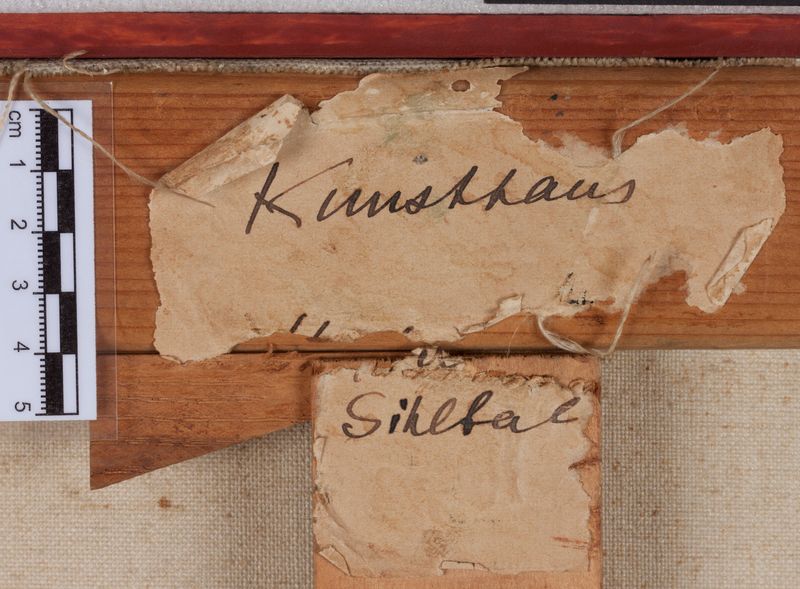 Kunsthaus
Sihltal
cm
1
2
3
4
5